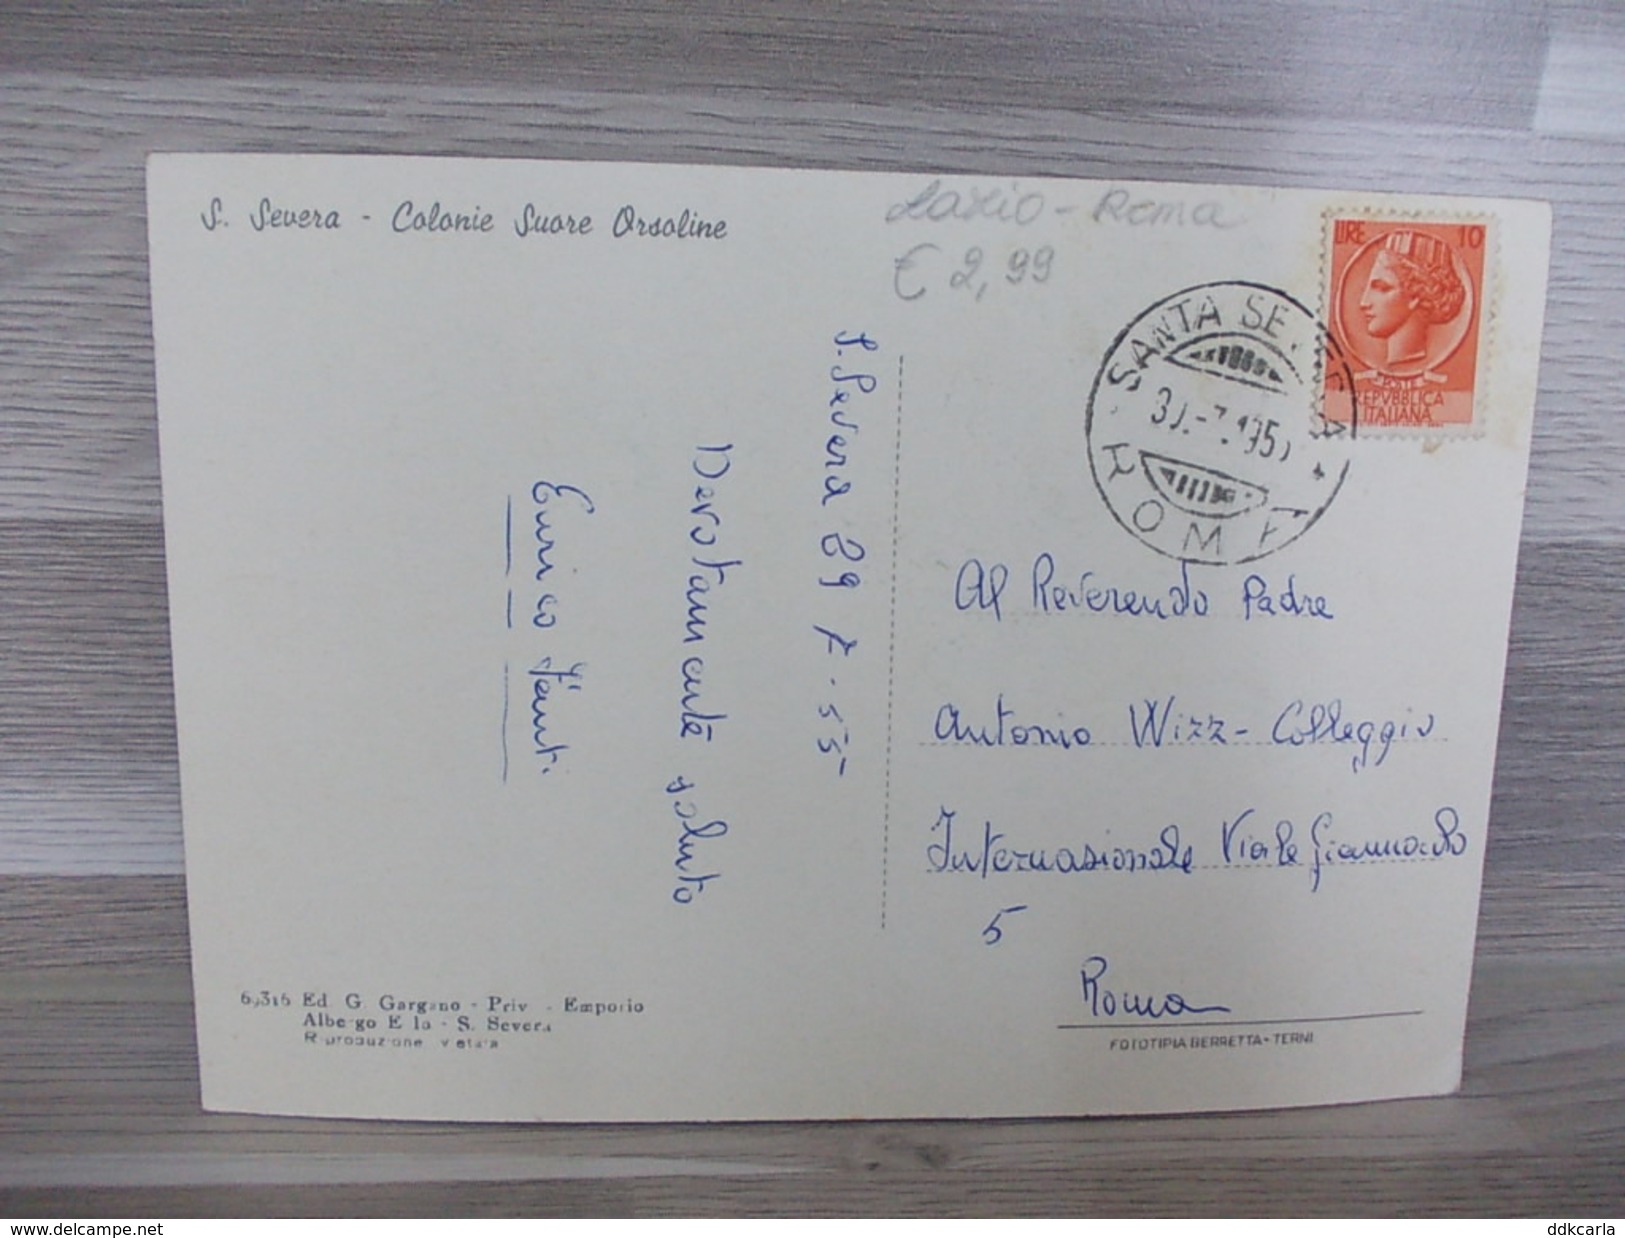 S. Severa - Colonie Suore Orsoline
Lazio - Roma
€ 2,99
LIRE 10
POSTE
REPVBBLICA
ITALIANA
SANTA SEVERA
ROMA
S. Severa 29 7 - 55
Devotamente saluto
Enrico
Al Reverendo Padre
Antonio Wizz - Colleggio
Internazionale Viale
5
Roma
Ed. G. Gargano - Priv. - Emporio
S. Severa
FOTOTIPIA BERRETTA - TERNI
www.delcampe.net
ddkcarla